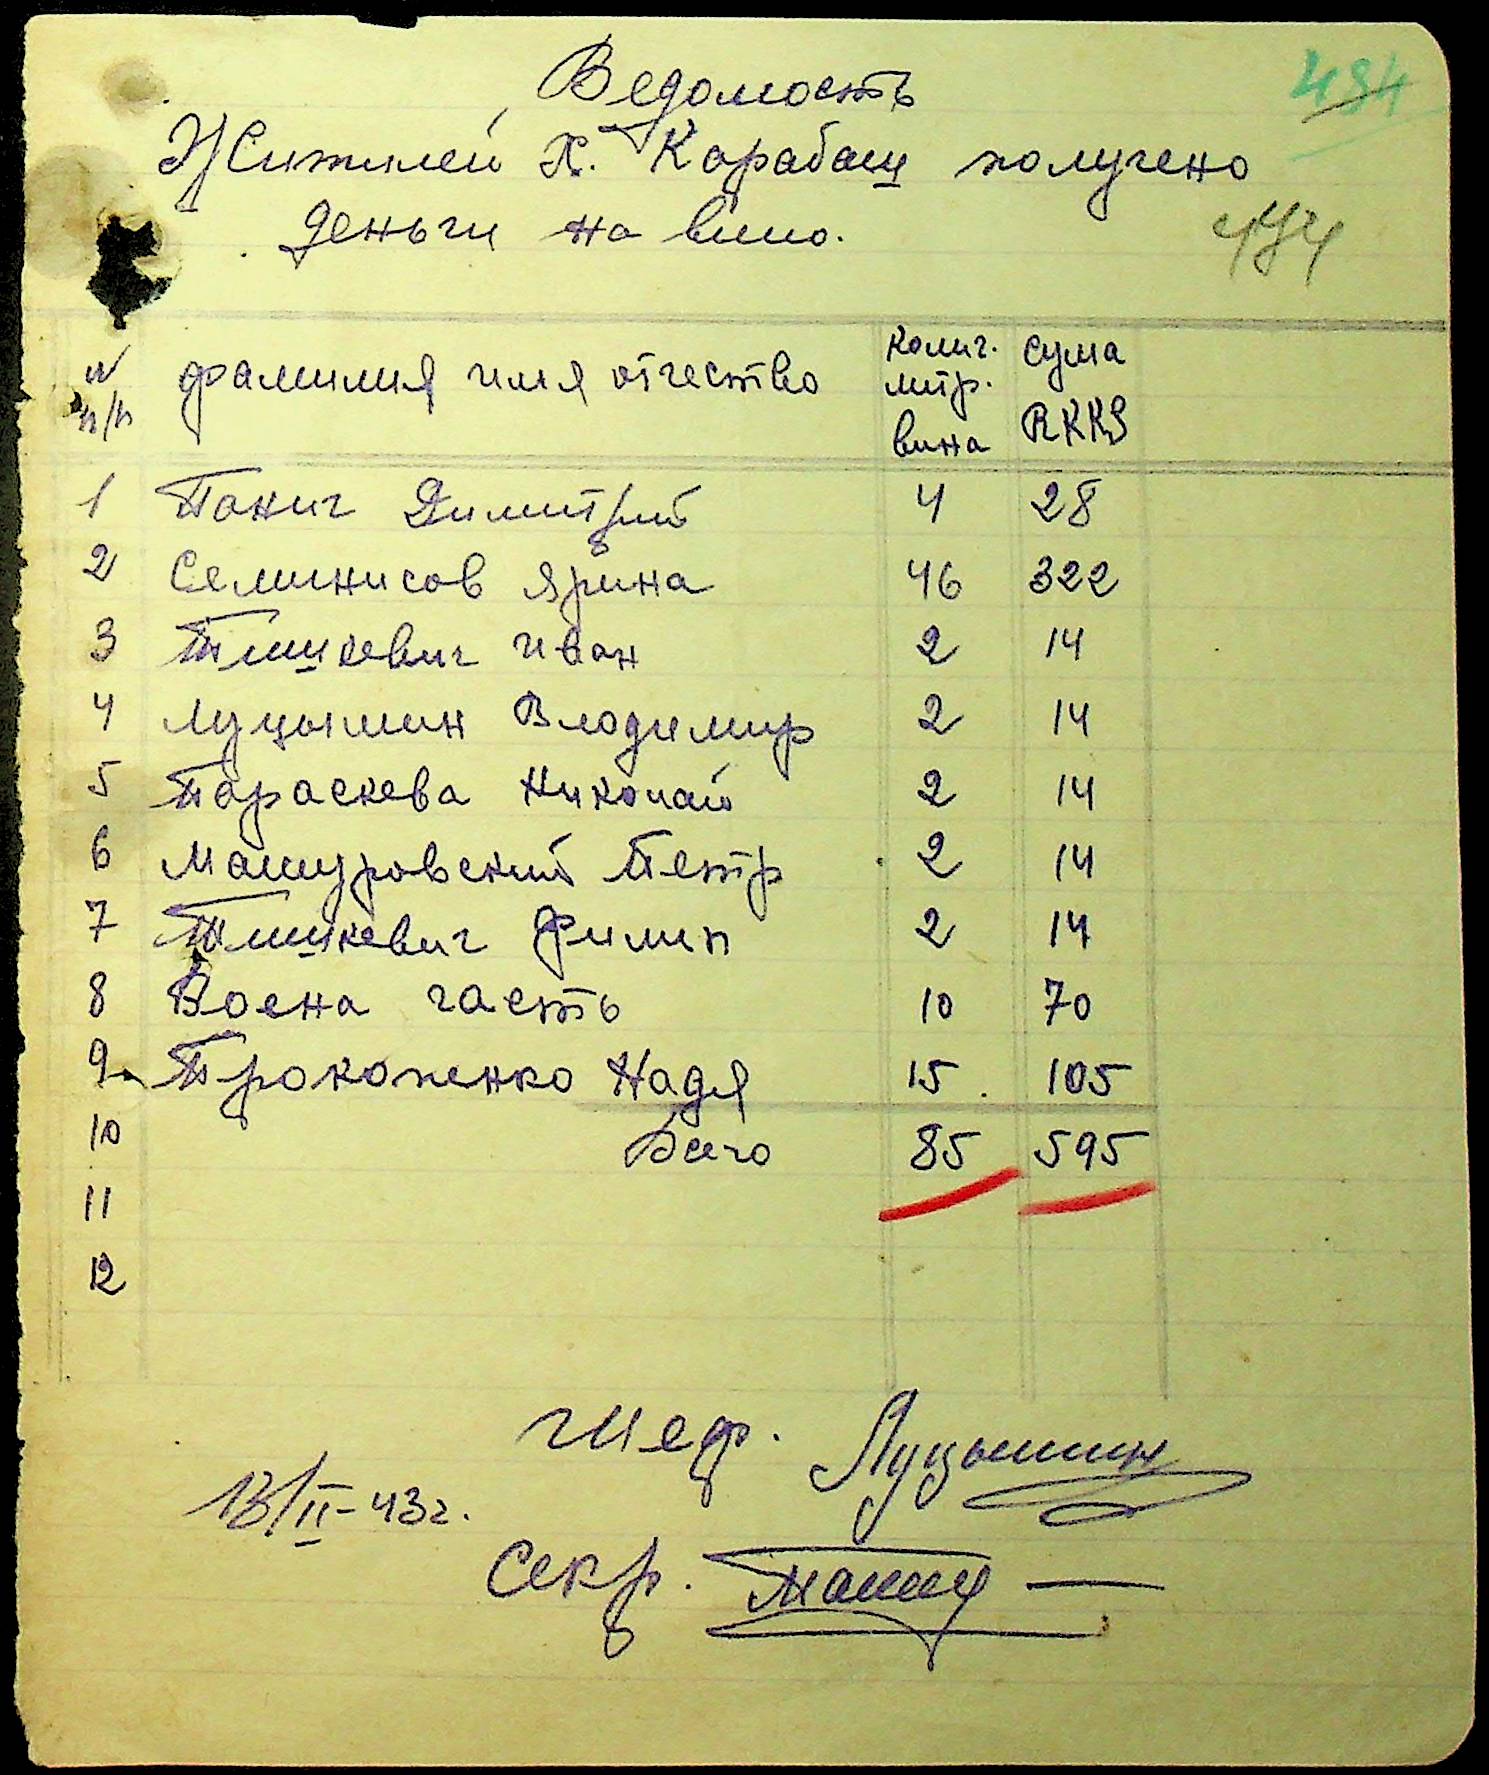 Ведомость
494
Жителей х. Карабаш получено
деньги на вино.
474
N п/п фамилия имя отчество колич. литр. вина сума RKKS
1 Панич Димитрий 4 28
2 Семинисов Ярина 46 322
3 Тишкевич Иван 2 14
4 Луцышин Володимир 2 14
5 Параскева Николай 2 14
6 Машуровский Петр 2 14
7 Тишкевич Филип 2 14
8 Воена часть 10 70
9 Прокопенко Надя 15 105
10 Всего 85 595
11
12
Шеф. Луцышин
13/II-43г.
Секр. Панич